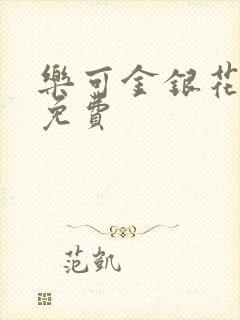 樂可金銀花
免費
范凱